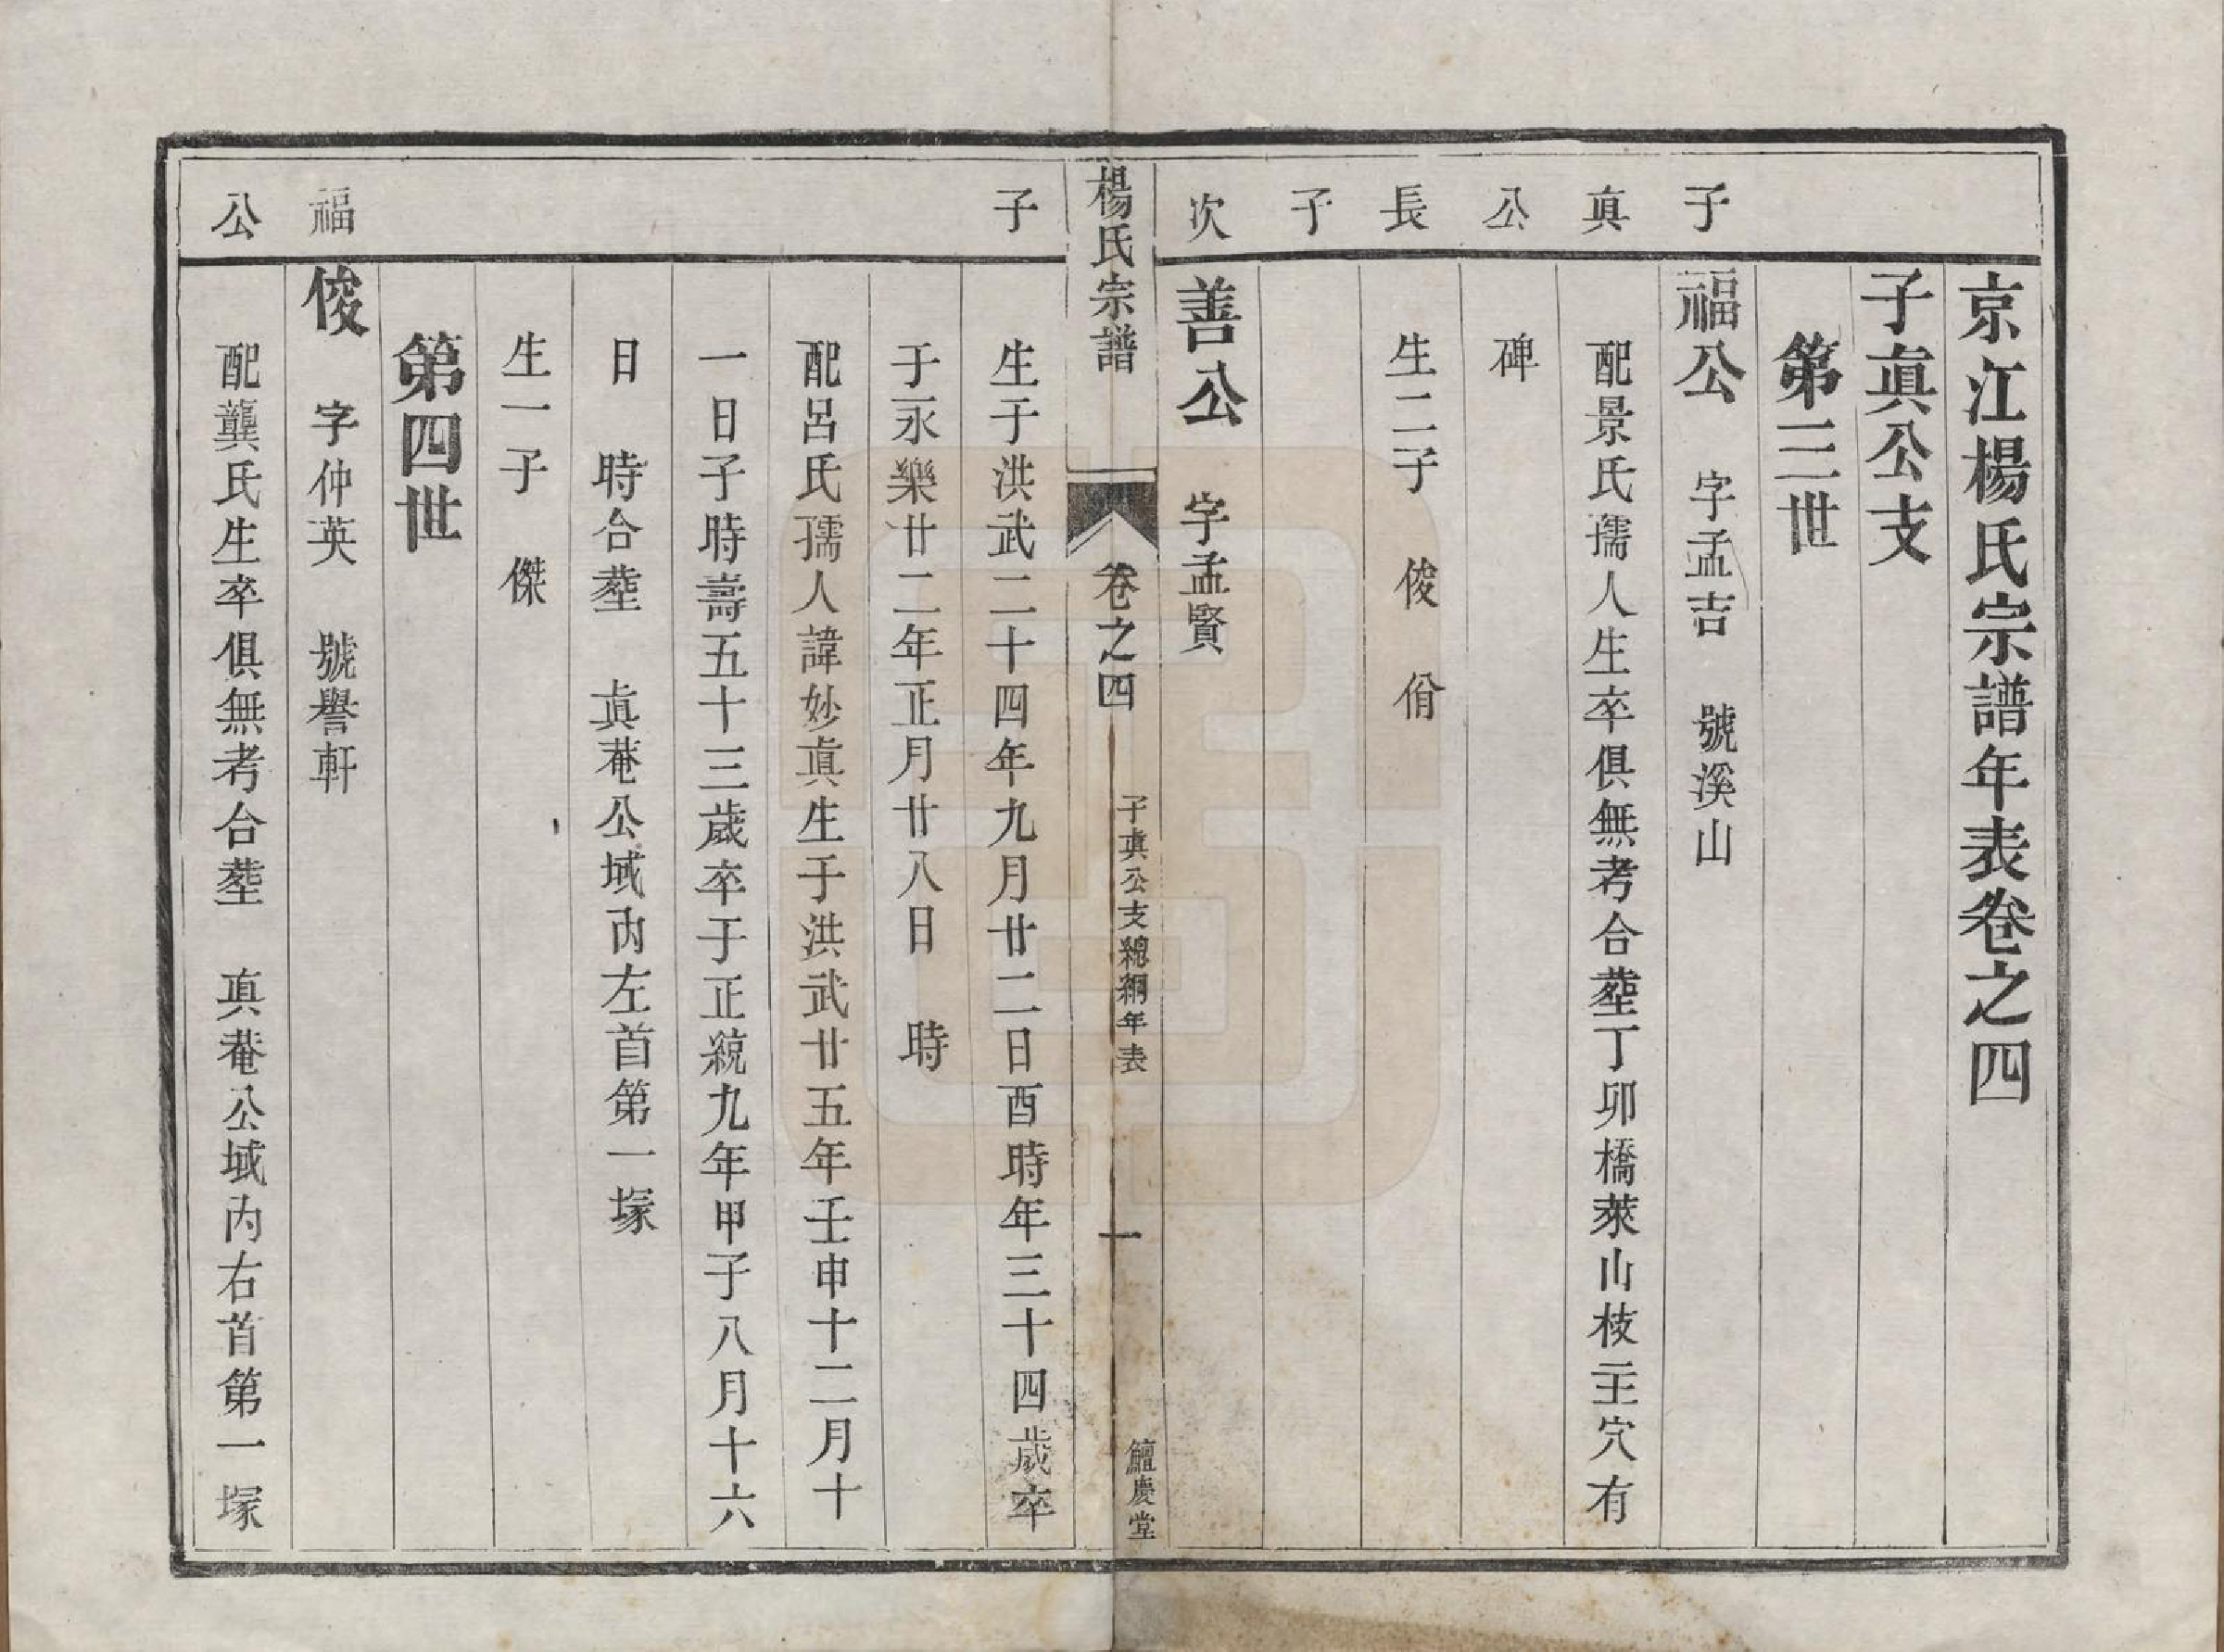 京江楊氏宗譜年表卷之四
子眞公支
第三世
子眞公長子
福公　字孟吉　號溪山
配景氏孺人生卒俱無考合塟丁卯橋萊山枝主穴有
碑
生二子　俊　佾
次
善公　字孟賢
楊氏宗譜　卷之四　子眞公支總綱年表　一　鱣慶堂
子
生于洪武二十四年九月廿二日酉時年三十四歲卒
于永樂廿二年正月廿八日　時
配呂氏孺人諱妙眞生于洪武廿五年壬申十二月十
一日子時壽五十三歲卒于正統九年甲子八月十六
日　時合塟　眞菴公域內左首第一塚
生一子　傑
第四世
福公
俊　字仲英　號譽軒
配龔氏生卒俱無考合塟　眞菴公域內右首第一塚